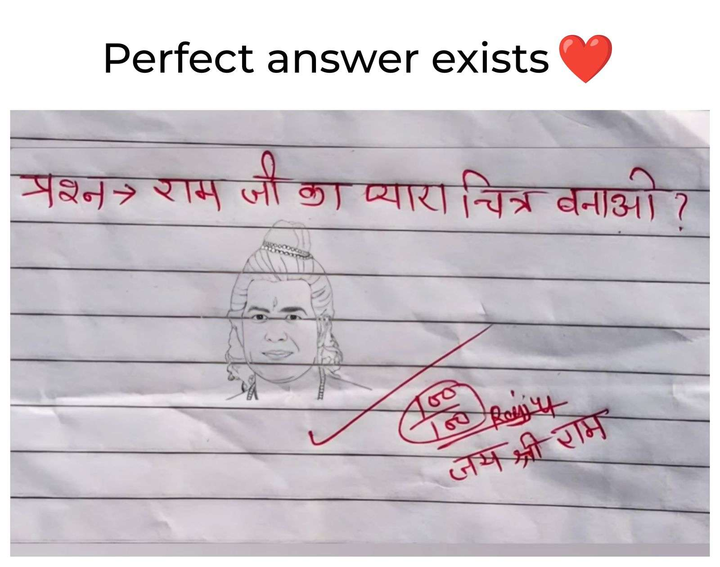 Perfect answer exists ❤️
प्रश्न → राम जी का प्यारा चित्र बनाओ ?
100
100
जय श्री राम